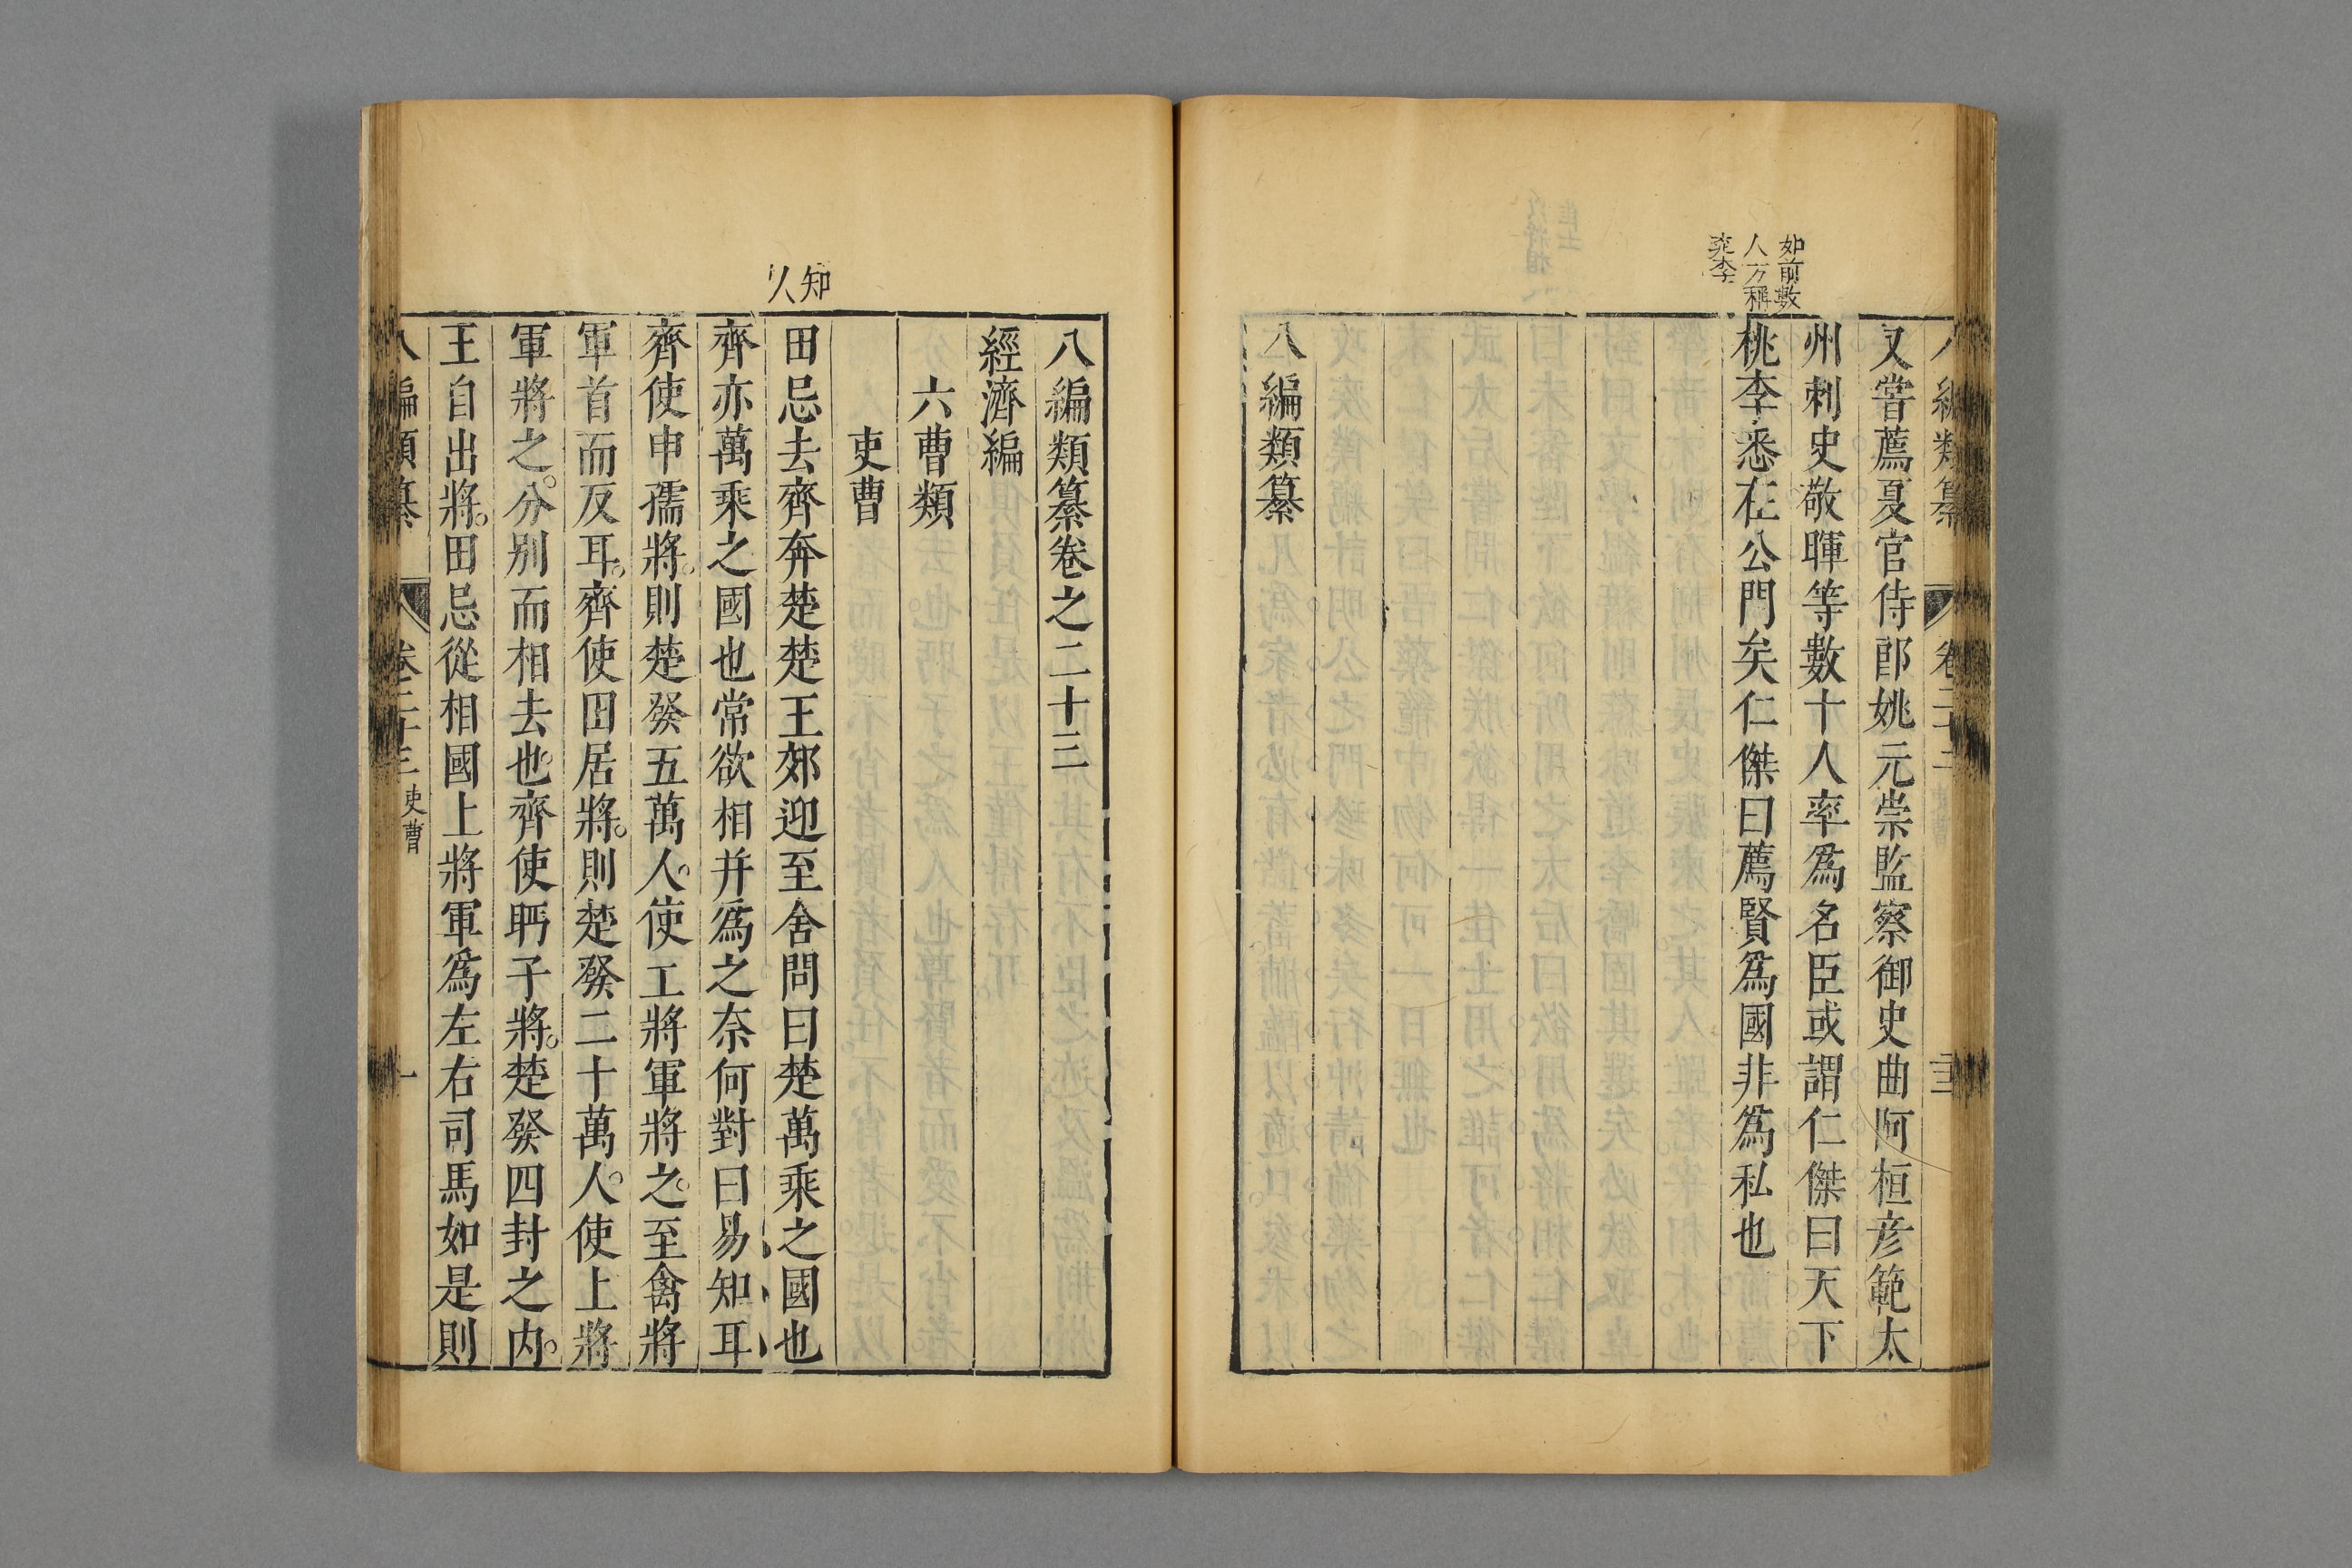 如前數
人方稱
桃李
八編類纂 卷二十二
又嘗薦夏官侍郎姚元崇監察御史曲阿桓彦範太
州刺史敬暉等數十人率爲名臣或謂仁傑曰天下
桃李悉在公門矣仁傑曰薦賢爲國非爲私也
八編類纂
知
人
八編類纂卷之二十三
經濟編
六曹類
吏曹
田忌去齊奔楚楚王郊迎至舍問曰楚萬乘之國也
齊亦萬乘之國也常欲相并爲之奈何對曰易知耳
齊使申孺將則楚發五萬人使上將軍將之至禽將
軍首而反耳齊使田居將則楚發二十萬人使上將
軍將之分别而相去也齊使眄子將楚發四封之内
王自出將田忌從相國上將軍爲左右司馬如是則
八編類纂 卷二十三 吏曹 一